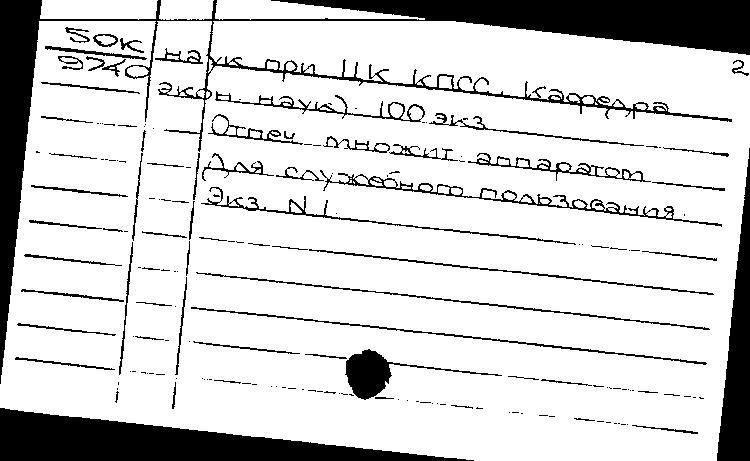 2
50К
9740
наук при ЦК КПСС. Кафедра
экон. наук). 100 экз
Отпеч множит. аппаратом
Для служебного пользования.
Экз. N 1.